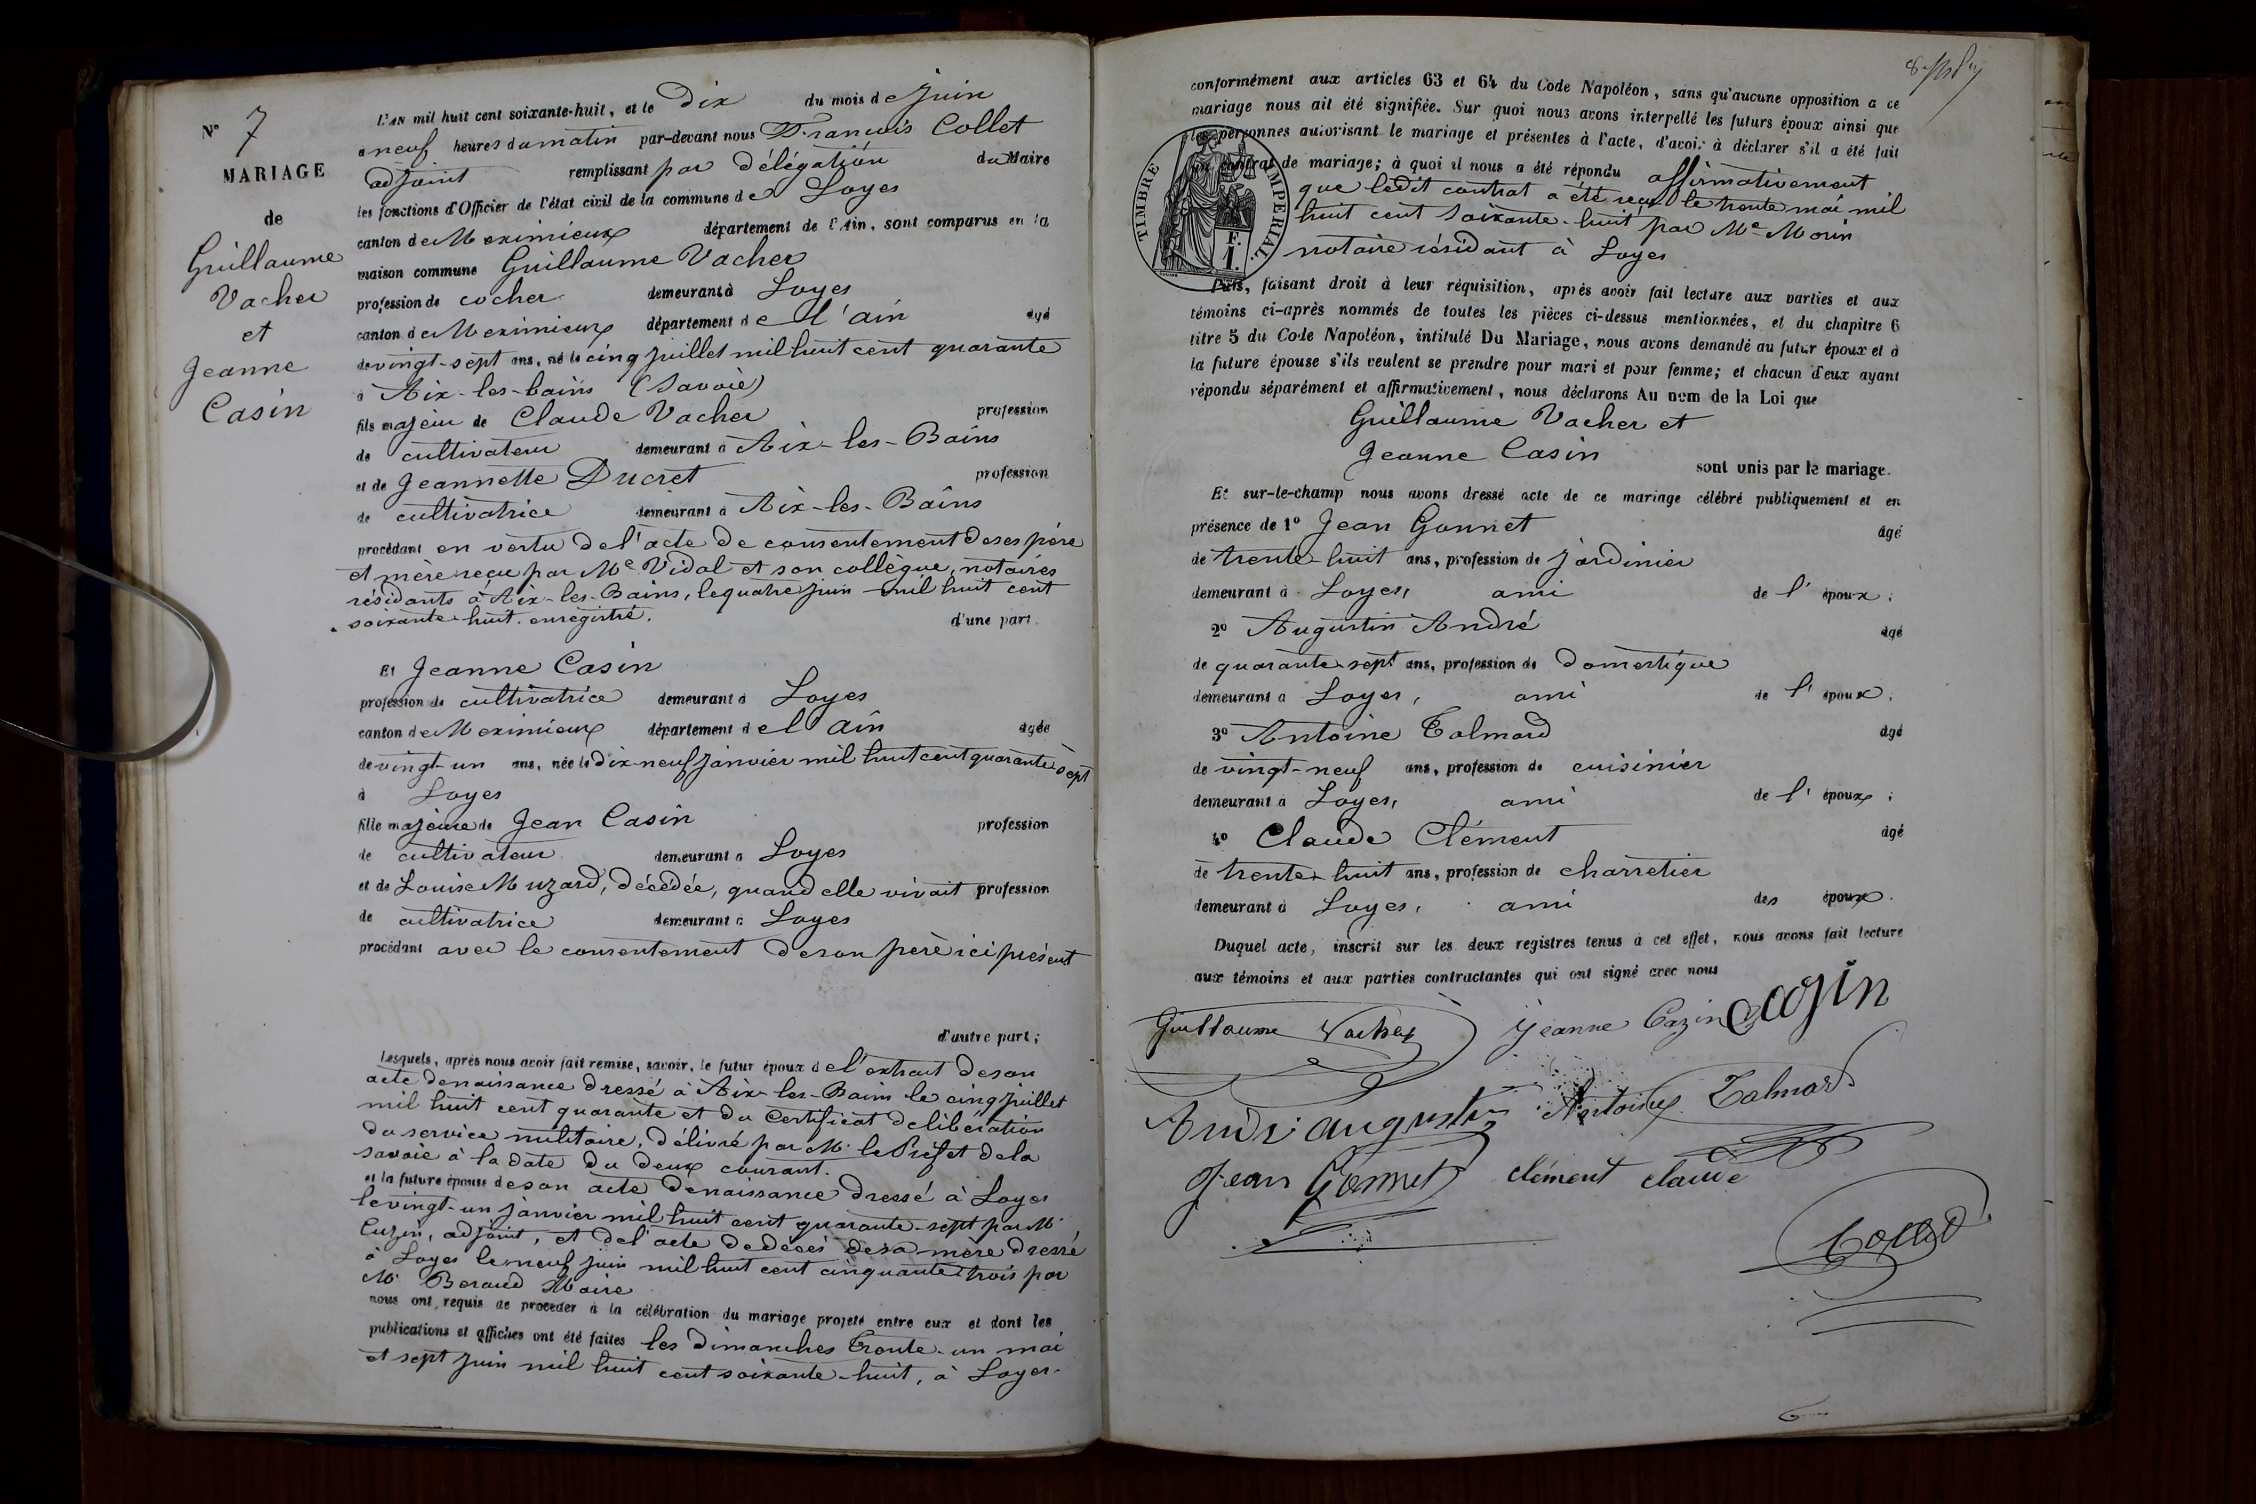 N° 7
MARIAGE
de
Guillaume
Vacher
et
Jeanne
Casin
L'AN mil huit cent soixante-huit, et le dix du mois de Juin
a neuf heures du matin par-devant nous François Collet
adjoint remplissant par délégation du Maire
les fonctions d'Officier de l'état civil de la commune de Loyes
canton de Meximieux département de l'Ain, sont comparus en la
maison commune Guillaume Vacher
profession de cocher demeurant à Loyes
canton de Meximieux département de l'ain âgé
de vingt-sept ans, né le cinq juillet mil huit cent quarante
à Aix-les-bains (Savoie)
fils majeur de Claude Vacher profession
de cultivateur demeurant à Aix-les-Bains
et de Jeannette Ducret profession
de cultivatrice demeurant à Aix-les-Bains
procédant en vertu de l'acte de consentement de ses père
et mère reçu par Me Vidal et son collègue, notaires
résidants à Aix-les-Bains, le quatre juin mil huit cent
soixante-huit. enregistré. d'une part.
Et Jeanne Casin
profession de cultivatrice demeurant à Loyes
canton de Meximieux département de l'Ain âgée
de vingt-un ans, née le dix-neuf janvier mil huit cent quarante sept
à Loyes
fille majeure de Jean Casin profession
de cultivateur demeurant à Loyes
et de Louise Muzard, décédée, quand elle vivait profession
de cultivatrice demeurant à Loyes
procédant avec le consentement de son père ici présent
d'autre part;
Lesquels, après nous avoir fait remise, savoir, le futur époux de l'extrait de son
acte de naissance dressé à Aix-les-Bains le cinq juillet
mil huit cent quarante et du Certificat de libération
du service militaire, délivré par M. le Préfet de la
savoie à la date du deux courant.
et la future épouse de son acte de naissance dressé à Loyes
le vingt-un janvier mil huit cent quarante-sept par Mr
Cuzin, adjoint, et de l'acte de décès de sa mère dressé
à Loyes le neuf juin mil huit cent cinquante trois par
Mr Beraud Maire
nous ont requis de procéder à la célébration du mariage projeté entre eux et dont les
publications et affiches ont été faites les dimanches trente-un mai
et sept juin mil huit cent soixante-huit, à Loyes.
conformément aux articles 63 et 64 du Code Napoléon, sans qu'aucune opposition a ce
mariage nous ait été signifiée. Sur quoi nous avons interpellé les futurs époux ainsi que
les personnes autorisant le mariage et présentes à l'acte, d'avoir à déclarer s'il a été fait
un contrat de mariage; à quoi il nous a été répondu affirmativement
que ledit contrat a été reçu le trente mai mil
huit cent soixante-huit par Me Morin
notaire résidant à Loyes
TIMBRE IMPERIAL.
F.
1.
Puis, faisant droit à leur réquisition, après avoir fait lecture aux parties et aux
témoins ci-après nommés de toutes les pièces ci-dessus mentionnées, et du chapitre 6
titre 5 du Code Napoléon, intitulé Du Mariage, nous avons demandé au futur époux et à
la future épouse s'ils veulent se prendre pour mari et pour femme; et chacun d'eux ayant
répondu séparément et affirmativement, nous déclarons Au nom de la Loi que
Guillaume Vacher et
Jeanne Casin
sont unis par le mariage.
Et sur-le-champ nous avons dressé acte de ce mariage célébré publiquement et en
présence de 1° Jean Gonnet âgé
de trente-huit ans, profession de jardinier
demeurant à Loyes, ami de l'époux;
2° Augustin André âgé
de quarante-sept ans, profession de domestique
demeurant à Loyes, ami de l'époux;
3° Antoine Talmard âgé
de vingt-neuf ans, profession de cuisinier
demeurant à Loyes, ami de l'époux;
4° Claude Clément âgé
de trente-huit ans, profession de charretier
demeurant à Loyes, ami des époux.
Duquel acte, inscrit sur les deux registres tenus à cet effet, nous avons fait lecture
aux témoins et aux parties contractantes qui ont signé avec nous
Guillaume Vacher Jeanne Cazin Casin
André augustin Antoine Talmard
Jean Gonnet Clément Claude
Collet